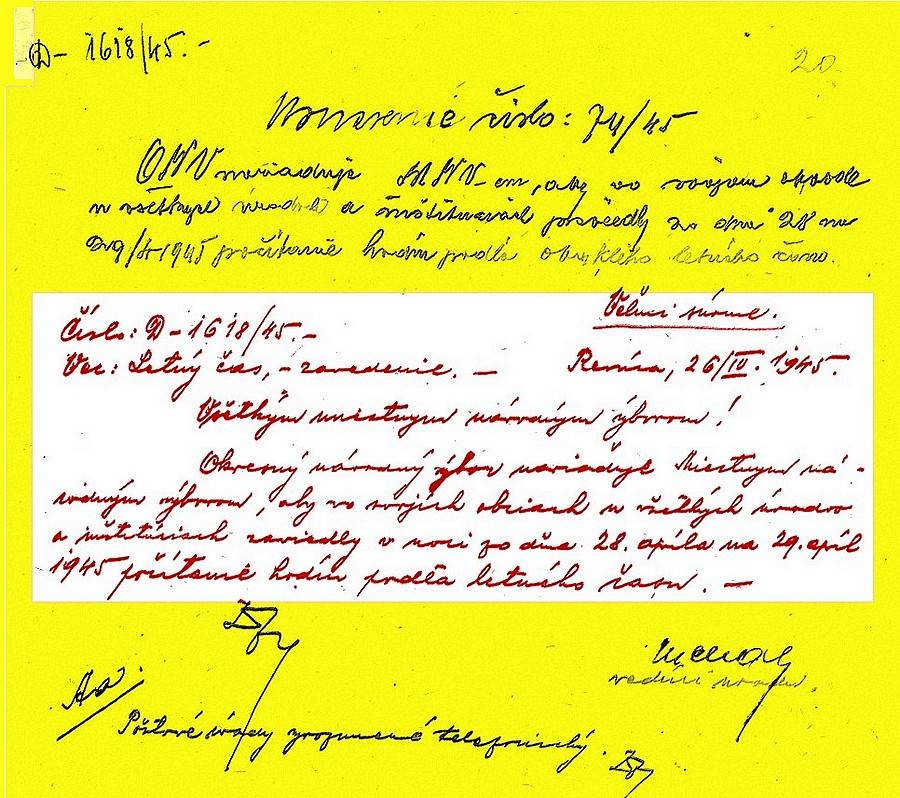 D - 1618/45.-
20
číslo: 74/45
ONV nariaduje MNV-om, aby vo svojom obvode
u všetkých úradoch a inštitúciách previedly zo dňa 28 na
29/4 1945 počítanie hodín podľa obvyklého letného času.
Veľmi súrne.
Číslo: D-1618/45.-
Vec: Letný čas, - zavedenie. —
Revúca, 26/IV. 1945.
Všetkým miestnym národným výborom!
Okresný národný výbor nariaďuje Miestnym ná-
rodným výborom, aby vo svojich obciach u všetkých úradov
a inštitúciach zaviedly v noci zo dňa 28. apríla na 29. apríl
1945 počítanie hodín podľa letného času. —
vedúci úradu.
Aa.
Poštové úrady vyrozumené telefonicky.